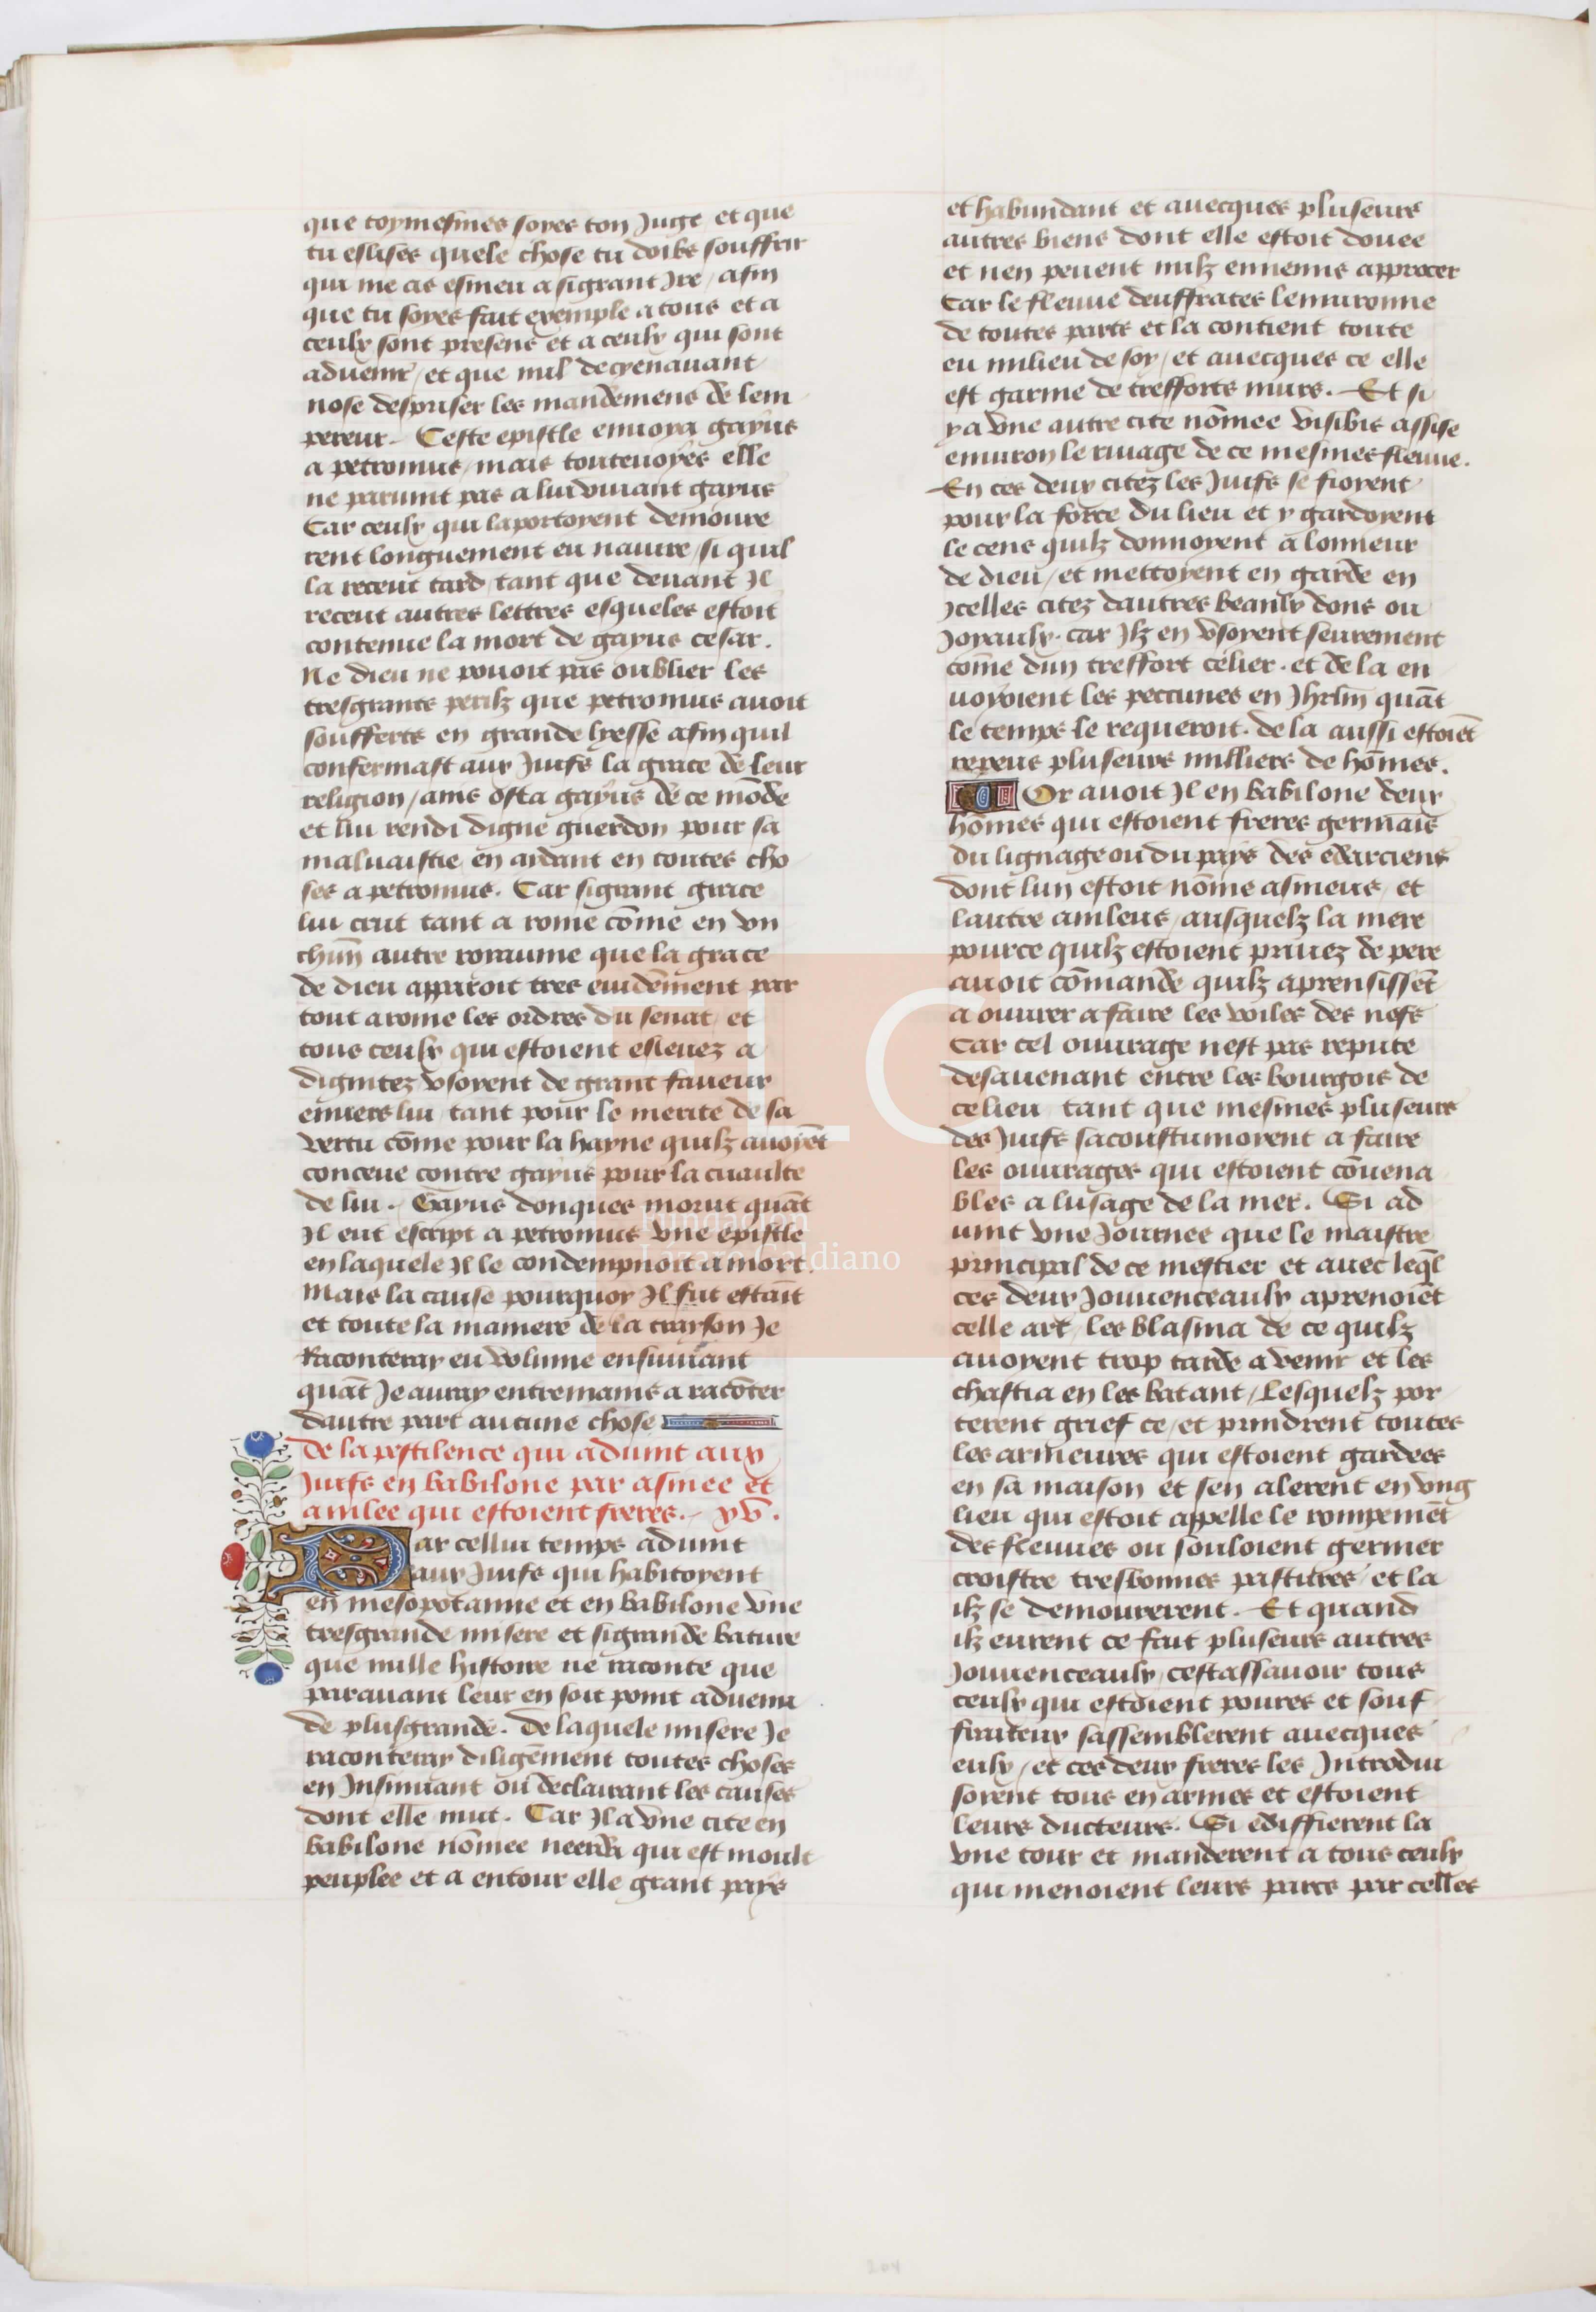 que toymesmes soyes ton Juge et que
tu eslises quele chose tu doibs souffrir
qui me as esmeu a sigrant Ire / afin
que tu soyes fait exemple a tous et a
ceulx sont presens et a ceulx qui sont
aduenir / et que nul decyenauant
nose despriser les mandemens de lem
pereur. Ceste epistle enuoya gayus
a petronius / mais toutenoyes elle
ne paruint pas a lui viuant gayus
Car ceulx qui laportoyent demoure
rent longuement en nauire / si quil
la receut tard tant que deuant Il
receut autres lettres esqueles estoit
contenue la mort de gayus cesar.
Ne dieu ne pouoit pas oublier les
tresgrants perilz que petronius auoit
soufferts en grande lyesse afin quil
confermast aux Juifs la grace de leur
religion / ains osta gayus de ce mōde
et lui rendi digne guerdon pour sa
maluaistie en aidant en toutes cho
ses a petronius. Car sigrant grace
lui crut tant a rome cōme en vn
chūn autre royaume que la grace
de dieu apparoit tres euidēment par
tout a rome les ordres du senat et
tous ceulx qui estoient esleuez a
dignitez vsoyent de grant faueur
enuers lui tant pour le merite de sa
vertu cōme pour la hayne quilz auoyēt
conceue contre gayus pour la cruaulte
de lui. Gayus donques morut quāt
Il eut escript a petronius vne epistle
en laquele Il le condempnoit a mort.
Mais la cause pourquoy Il fut estaīt
et toute la maniere de la trayson Je
Raconteray eu volume ensuiuant
quāt Je auray entremains a racōter
dautre part aucune chose
de la pestilence qui aduint aux
Juifs en babilone par asinee et
anilee qui estoient freres. xv.
Par cellui temps aduint
aux Juifs qui habitoyent
en mesopotamie et en babilone vne
tresgrande misere et sigrande bature
que nulle histoire ne raconte que
parauant leur en soit point aduenu
de plusgrande. De laquele misere Je
raconteray diligēment toutes choses
en Insinuant ou declairant les causes
dont elle mut. Car Il a vne cite en
babilone nōmee neerda qui est moult
peuplee et a entour elle grant pays
et habundant et auecques pluseurs
autres biens dont elle estoit douee
et nen peuent nulz ennemis approcer
Car le fleuue deuffrates lenuironne
de toutes parts et la contient toute
eu milieu de soy / et auecques ce elle
est garnie de trefforts murs. Et si
y a vne autre cite nōmee visibis assise
enuiron le riuage de ce mesmes fleuue.
En ces deux citez les Juifs se fioyent
pour la force du lieu et y gardoyent
le cens quilz donnoyent a lonneur
de dieu / et mettoyent en garde en
Icelles citez dautres beaulx dons ou
Joyaulx. car Ilz en vsoyent seurement
cōme dun treffort celier. et de la en
uoyoient les peccunes en Jhrl̄m quāt
le temps le requeroit. de la aussi estoiēt
repeus pluseurs milliers de hōmes.
Or auoit Il en babilone deux
hōmes qui estoient freres germais
du lignage ou du pays des edarciens
dont lun estoit nōme asineus et
lautre anileus / ausquelz la mere
pource quilz estoient priuez de pere
auoit cōmande quilz aprensissēt
a ouurer a faire les voiles des nefs
Car cel ouurage nest pas repute
desauenant entre les bourgois de
ce lieu tant que mesmes pluseurs
des Juifs sacoustumoyent a faire
les ouurages qui estoient cōuena
bles a lusage de la mer. Si ad
uint vne Journee que le maistre
principal de ce mestier et auec leq̄l
ces deux Jouuenceaulx aprenoiēt
celle art / les blasma de ce quilz
auoyent trop tarde a venir et les
chastia en les batant / Lesquelz por
terent grief ce / et prindrent toutes
les armeures qui estoient gardees
en sa maison et sen alerent en vng
lieu qui estoit appelle le rompemēt
des fleuues ou souloient germer
croistre tresbonnes pastures / et la
ilz se demourerent. Et quand
ilz eurent ce fait pluseurs autres
Jouuenceaulx / cestassauoir tous
ceulx qui estoient poures et souf
fraiteux sassemblerent auecques
eulx / et ces deux freres les Introdui
soyent tous en armes et estoient
leurs ducteurs. Si edifficrent la
vne tour et manderent a tous ceulx
qui menoient leurs parcs par celles
Fundación
Lázaro Galdiano
FLG
204